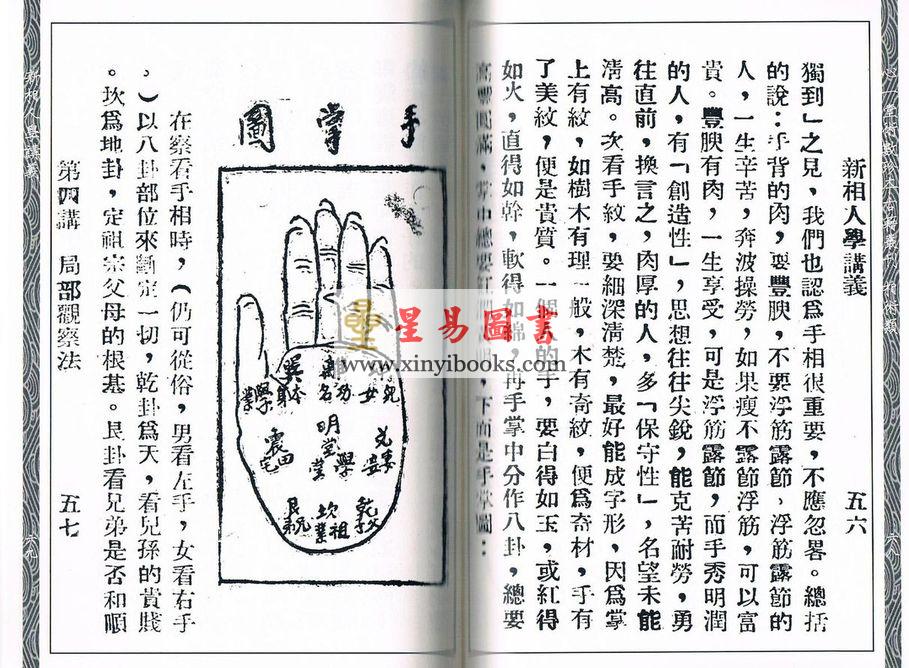 新相人學講義
五六
獨到」之見，我們也認爲手相很重要，不應忽畧。總括
的說：手背的肉，要豐腴，不要浮筋露節、浮筋露節的
人，一生辛苦，奔波操勞，如果瘦不露節浮筋，可以富
貴。豐腴有肉，一生享受，可是浮筋露節，而手秀明潤
的人，有「創造性」，思想往往尖銳，能克苦耐勞，勇
往直前，換言之，肉厚的人，多「保守性」，名望未能
淸高。次看手紋，要細深淸楚，最好能成字形，因爲掌
上有紋，如樹木有理一般，木有奇紋，便爲奇材，手有
了美紋，便是貴質。一個人的手，要白得如玉，或紅得
如火，直得如幹，軟得如綿，再手掌中分作八卦，總要
高豐圓滿，掌中總要紅潤，下面是手掌圖：
手掌圖
巽
離
功名
女
明堂
學堂
震
田宅
兌
妻
艮
坎
祖業
乾
在察看手相時，（仍可從俗，男看左手，女看右手
。）以八卦部位來斷定一切，乾卦爲天，看兒孫的貴賤
。坎爲地卦，定祖宗父母的根基。艮卦看兄弟是否和順
第四講 局部觀察法
五七
星易圖書
www.xinyibooks.com